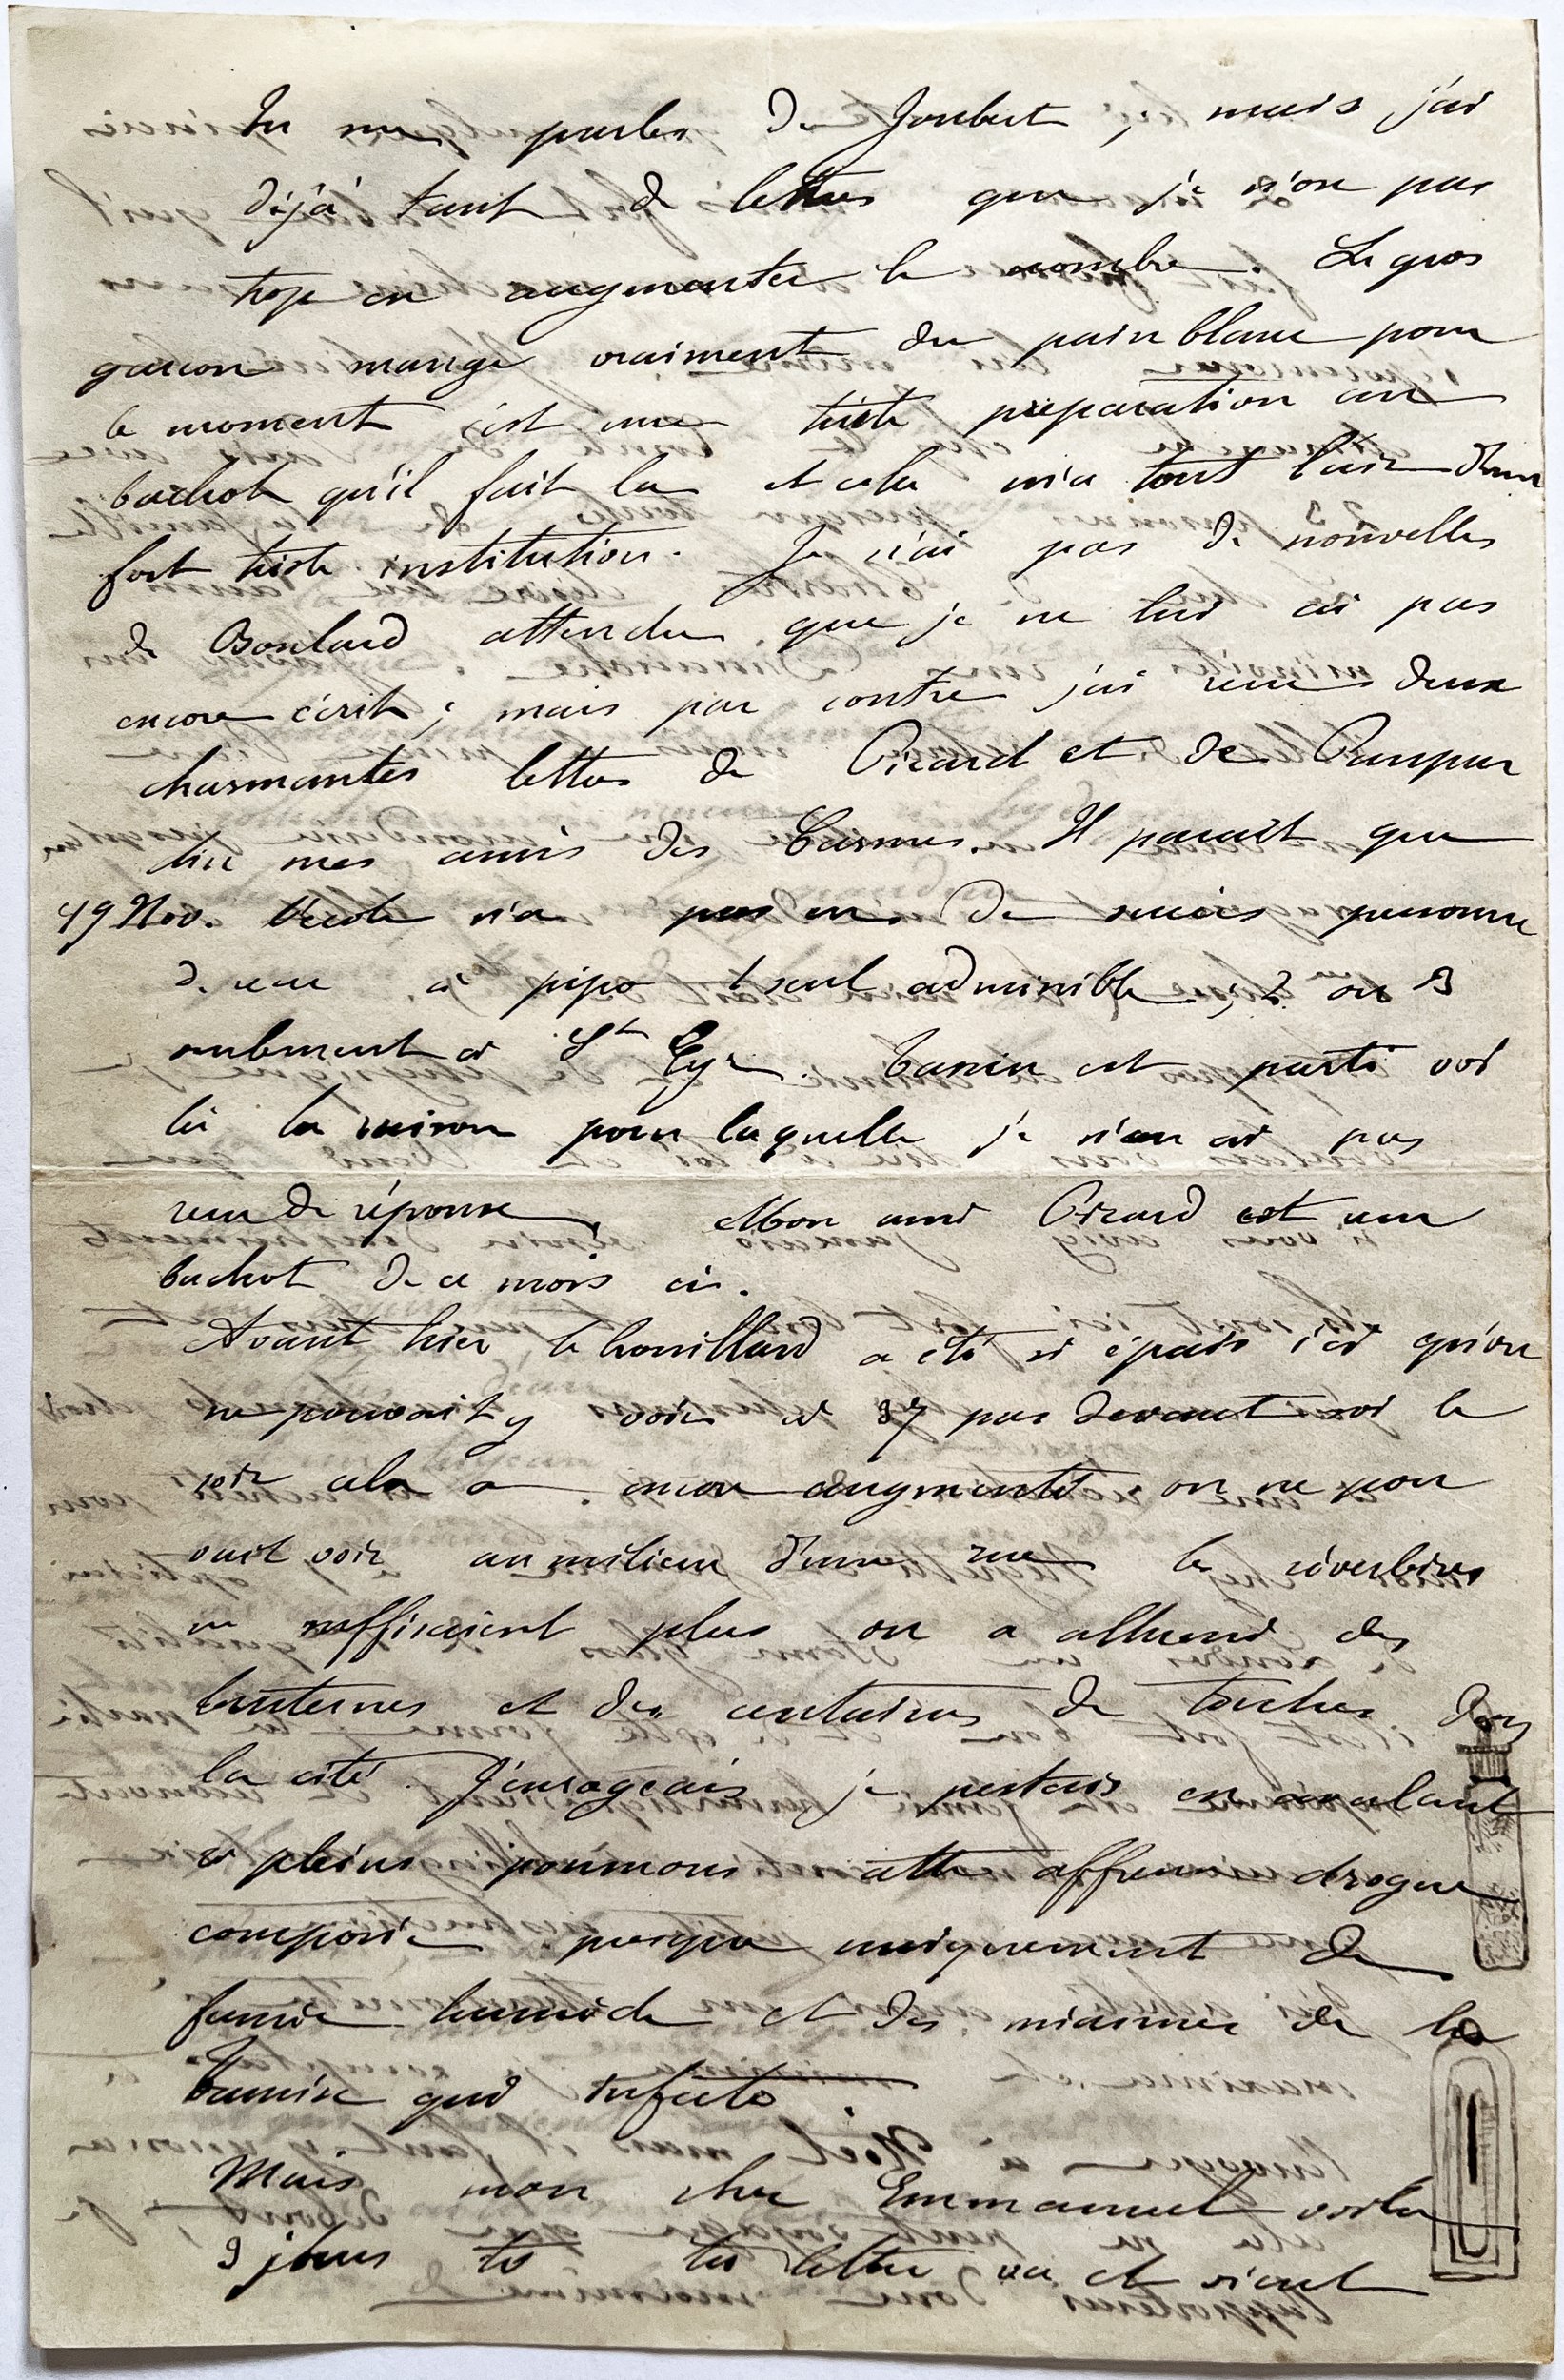 Tu me parles de Joubert, mais j'ai
déjà tant de lettres que je n'ose pas
trop en augmenter le nombre. Le gros
garçon mange vraiment du pain blanc pour
le moment c'est une triste préparation au
bachot qu'il fait la et cela m'a tout l'air d'une
fort triste institution. Je n'ai pas de nouvelles
de Boulard attendu que je ne lui ai pas
encore écrit; mais par contre j'ai reçu deux
charmantes lettres de Picard et de
mes amis des Carmes. Il parait que
19 Nov. l'école n'a pas eu de succès personne
de reçu à pipo 1 seul admissible, 2 ou 3
seulement à St Cyr. est parti voi
là la raison pour laquelle je n'en ai pas
reçu de réponse. Mon ami Picard est reçu
bachot de ce mois ci.
Avant hier le brouillard a été si épais ici qu'on
ne pouvait y voir à pas devant soi le
soir cela a encore augmenté on ne pou
vait voir au milieu d'une rue les réverbères
ne suffisaient plus on a allumé des
lanternes et des centaines de torches dans
la cité. J'enrageais je pestais en avalant
à pleins poumons cette affreuse drogue
composée presque uniquement de
fumée humide et des miasmes de la
Tamise qui infecte.
Mais mon cher Emmanuel voila
3 jours que ta lettre va et vient